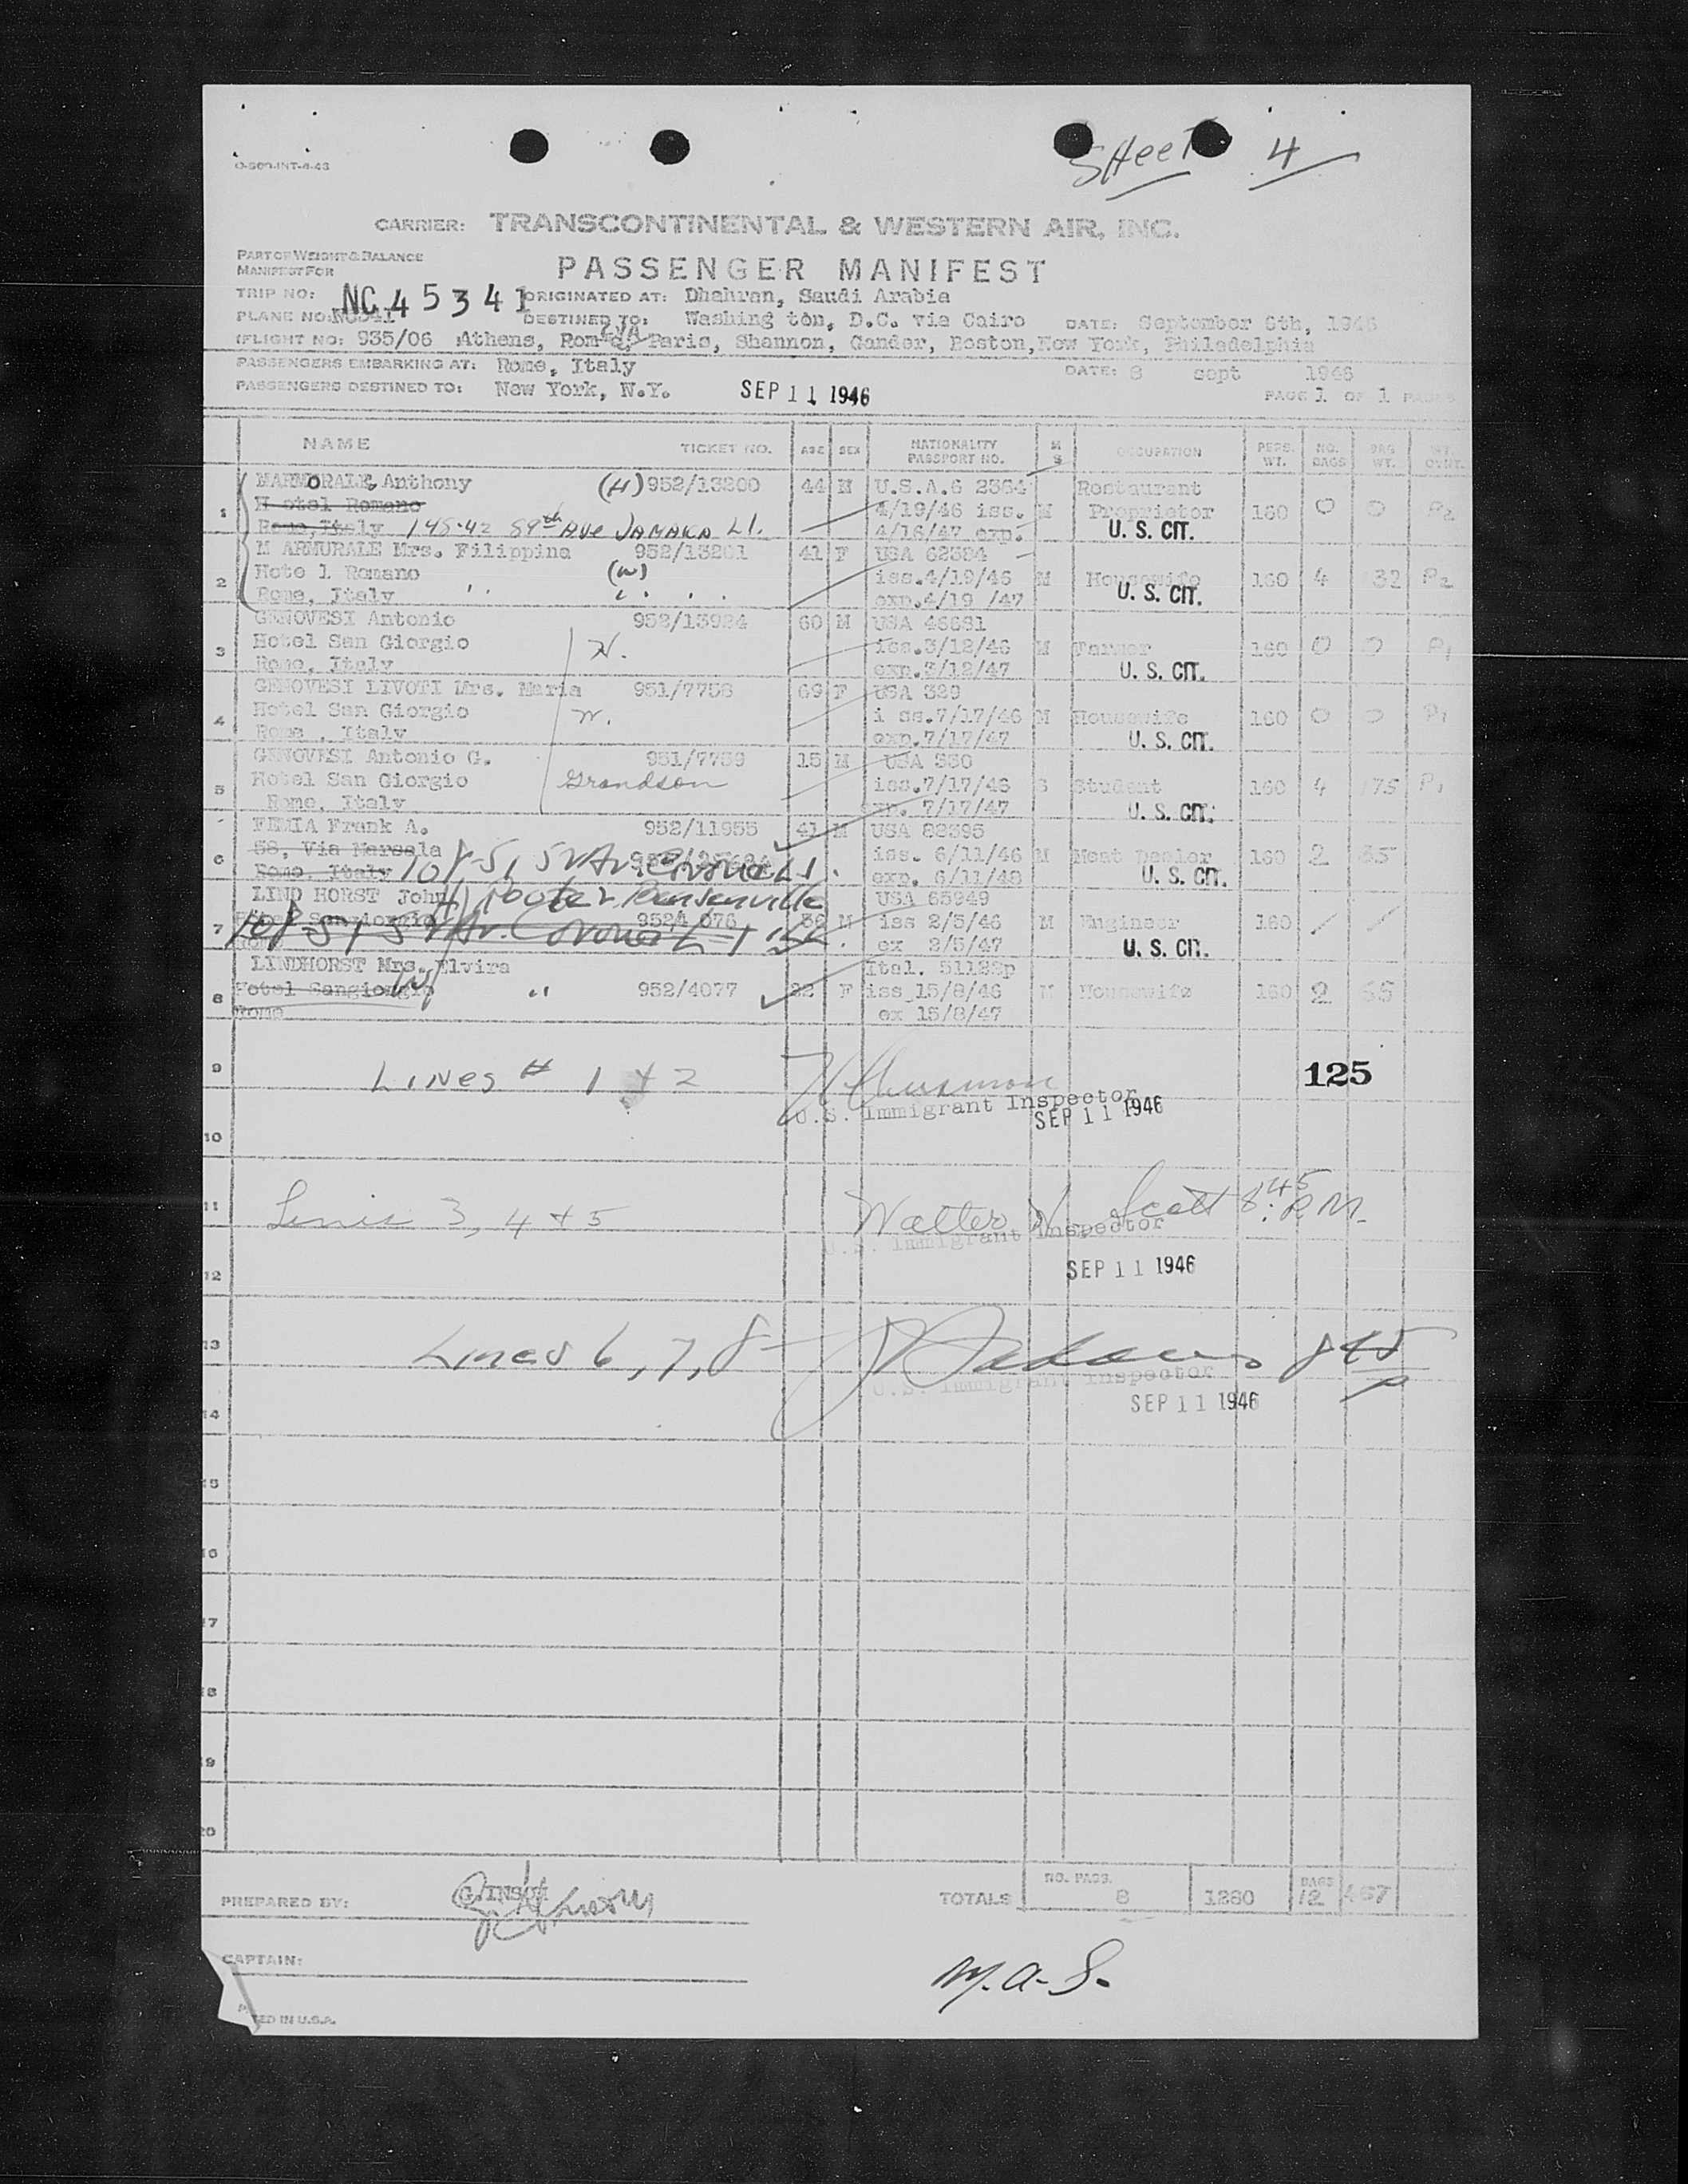 O-500-INT-4-43
SHeeT 4
CARRIER: TRANSCONTINENTAL & WESTERN AIR, INC.
PART OF WEIGHT & BALANCE
MANIFEST FOR
PASSENGER MANIFEST
TRIP NO: NC45341 ORIGINATED AT: Dhahran, Saudi Arabia
PLANE NO: DESTINED TO: Washing ton, D.C. via Cairo DATE: September 6th, 1946
(FLIGHT NO: 935/06 Athens, Rome, Paris, Shannon, Gander, Boston, New York, Philadelphia
PASSENGERS EMBARKING AT: Rome, Italy DATE: 8 sept 1946
PASSENGERS DESTINED TO: New York, N.Y. SEP 11 1946 PAGE 1 OF 1 PAGES
NAME TICKET NO. AGE SEX NATIONALITY PASSPORT NO. M S OCCUPATION PERS. WT. NO. BAGS BAG WT.
MARMORALE, Anthony (H) 952/13200 44 M U.S.A.6 2364 Restaurant
1 H otel Romano 4/19/46 iss. M Proprietor 160 0 0 P2
Rome, Italy 145-42 89th Ave JAMAICA LI. 4/18/47 exp. U. S. CIT.
M ARMURALE Mrs. Filippina 952/13201 41 F USA 62364
2 Hote l Romano (W) iss.4/19/46 M Housewife 160 4 32 P2
Rome, Italy " " exp.4/19 /47 U. S. CIT.
GENOVESI Antonio 952/13924 60 M USA 46681
3 Hotel San Giorgio H. iss.3/12/46 M Farmer 160 0 0 P1
Rome, Italy exp.3/12/47 U. S. CIT.
GENOVESI LIVOTI Mrs. Maria 951/7758 69 F USA 329
4 Hotel San Giorgio W. i ss.7/17/46 M Housewife 160 0 0 P1
Rome , Italy exp.7/17/47 U. S. CIT.
GENOVESI Antonio G. 951/7759 15 M USA 330
5 Hotel San Giorgio Grandson iss.7/17/46 S Student 160 4 175 P1
Rome, Italy exp. 7/17/47 U. S. CIT.
FEMIA Frank A. 952/11955 41 M USA 82395
6 58, Via Marsala iss. 6/11/46 M Meat Dealer 160 2 55
Rome, Italy 108-51 52 Av. Corona L.I. exp. 6/11/48 U. S. CIT.
LIND HORST John USA 65949
7 Hotel Sangiorgio 952/4 076 36 M iss 2/5/46 M Engineer 160 / /
Rome 108-51 52 Av. Corona L I ex 2/5/47 U. S. CIT.
LINDHORST Mrs. Elvira Ital. 51122p
8 Hotel Sangiorgio W " 952/4077 22 F iss 15/8/46 M Housewife 160 2 55
Rome ex 15/8/47
9 LINES # 1 & 2 125
U.S. Immigrant Inspector
SEP 11 1946
10
11 Lines 3, 4 & 5 Walter Scott 8:45 P.M.
U.S. Immigrant Inspector
12 SEP 11 1946
13 Lines 6, 7, 8 - 845 P
U.S. Immigrant Inspector
14 SEP 11 1946
15
16
17
18
19
20
PREPARED BY: TOTALS NO. PASS. 8 1280 BAGS 12 467
CAPTAIN: M.A.S.
PRINTED IN U.S.A.